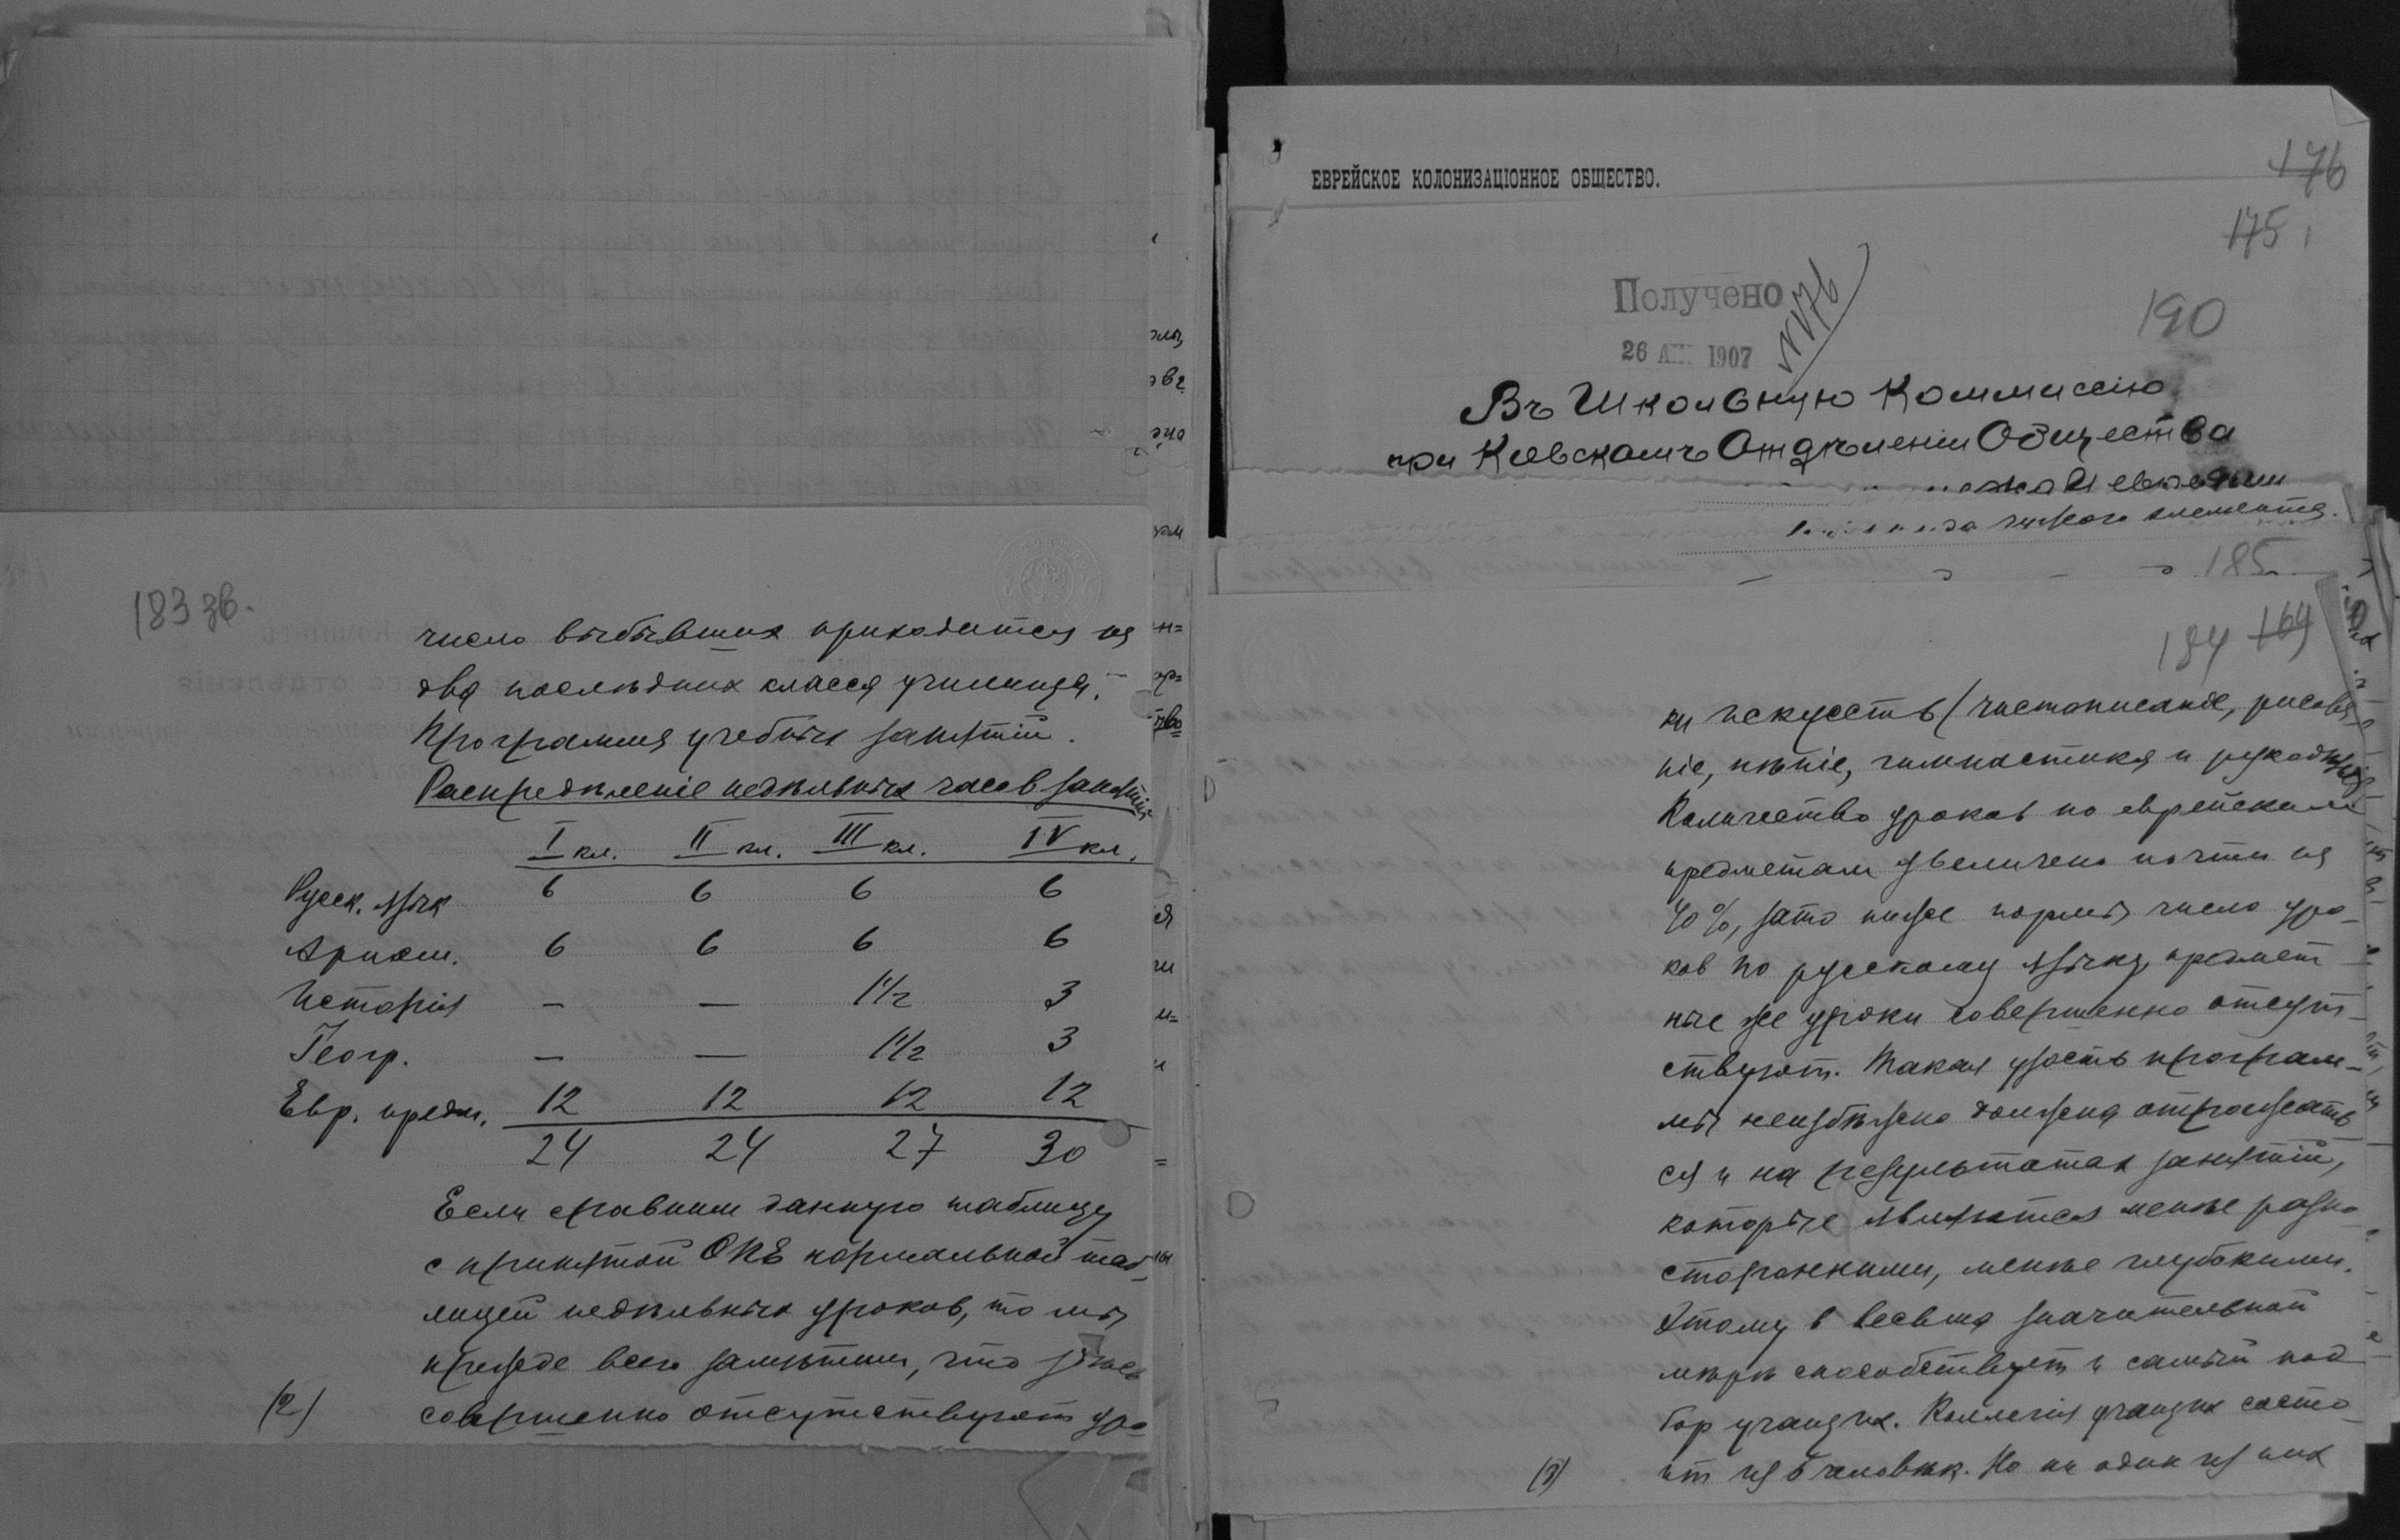 183 зв.
число выбывших приходится на
два последних класса училища.
Программа учебных занятій.
Распредѣленіе недѣльных часов занятій
I кл. II кл. III кл. IV кл.
Русск. язык 6 6 6 6
Арихм. 6 6 6 6
Исторія — — 1 1/2 3
Геогр. — — 1 1/2 3
Евр. предм. 12 12 12 12
24 24 27 30
Если сравним данную таблицу
с принятой ОПЕ нормальной таб-
лицей недѣльных уроков, то мы
прежде всего замѣтим, что здѣсь
(2) совершенно отсутствуют уро-
ЕВРЕЙСКОЕ КОЛОНИЗАЦІОННОЕ ОБЩЕСТВО.
176
175
Получено
N 176
26 1907
190
Въ Школьную Коммиссію
при Кіевскомъ Отдѣленіи Общества
евреями
элемента.
185
184 169
ки искусств (чистописаніе, рисова-
ніе, пѣніе, гимнастика и рукодѣліе
Количество уроков по еврейским
предметам увеличено почти на
40%, зато ниже нормы число уро-
ков по русскому языку, предмет
ные же уроки совершенно отсут-
ствуют. Такая узость програм-
мы неизбѣжно должна отражать
ся и на результатах занятій,
которые являются менѣе разно-
сторонними, менѣе глубокими.
Этому в весьма значительной
мѣрѣ способствует и самый под
бор учащих. Коллегія учащих состо-
(3) ит из 5 человѣк. Но ни один из них